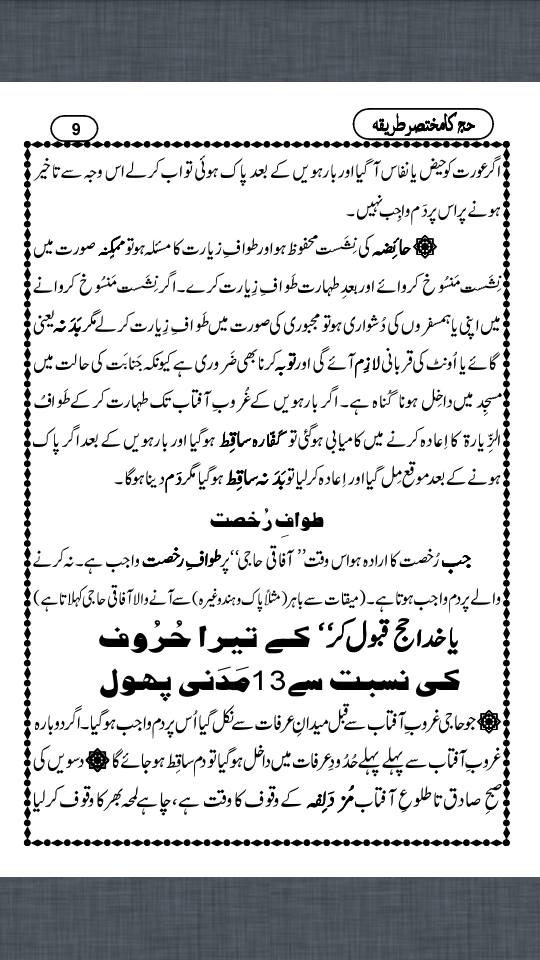 حج کا مختصر طریقہ
9
اگر عورت کو حیض یا نفاس آ گیا اور بارہویں کے بعد پاک ہوئی تو اب کر لے اس وجہ سے تاخیر
ہونے پر اس پر دَم واجب نہیں۔
حائِضہ کی نِشَست محفوظ ہو اور طوافِ زیارت کا مسئلہ ہو تو ممکِنہ صورت میں
نِشَست مَنسُوخ کروائے اور بعدِ طہارت طوافِ زیارت کرے۔ اگر نِشَست مَنسُوخ کروانے
میں اپنی یا ہمسفروں کی دُشواری ہو تو مجبوری کی صورت میں طوافِ زیارت کر لے مگر بَدَنہ یعنی
گائے یا اُونٹ کی قربانی لازِم آئے گی اور توبہ کرنا بھی ضَروری ہے کیونکہ جَنابَت کی حالت میں
مسجِد میں داخل ہونا گناہ ہے۔ اگر بارہویں کے غُروبِ آفتاب تک طہارت کر کے طَوافُ
الزِّیارۃ کا اِعادہ کرنے میں کامیابی ہوگئی تو کفّارہ ساقِط ہوگیا اور بارہویں کے بعد اگر پاک
ہونے کے بعد موقع مِل گیا اور اِعادہ کر لیا تو بَدَنہ ساقِط ہوگیا مگر دَم دینا ہوگا۔
طوافِ رُخصت
جب رُخصت کا ارادہ ہو اس وقت ’’آفاقی حاجی‘‘ پر طوافِ رخصت واجب ہے۔ نہ کرنے
والے پر دم واجب ہوتا ہے۔ (میقات سے باہر (مثلاً پاک و ہند وغیرہ) سے آنے والا آفاقی حاجی کہلاتا ہے)
یا خدا حج قبول کر‘‘ کے تیرا حُرُوف
کی نسبت سے 13 مَدَنی پھول
جو حاجی غروبِ آفتاب سے قبل میدانِ عرفات سے نکل گیا اُس پر دم واجب ہوگیا۔ اگر دوبارہ
غروبِ آفتاب سے پہلے پہلے حُدُودِ عرفات میں داخل ہوگیا تو دم ساقِط ہو جائے گا دسویں کی
صبحِ صادق تا طلوعِ آفتاب مُزدَلِفہ کے وقوف کا وقت ہے، چاہے لمحہ بھر کا وقوف کر لیا